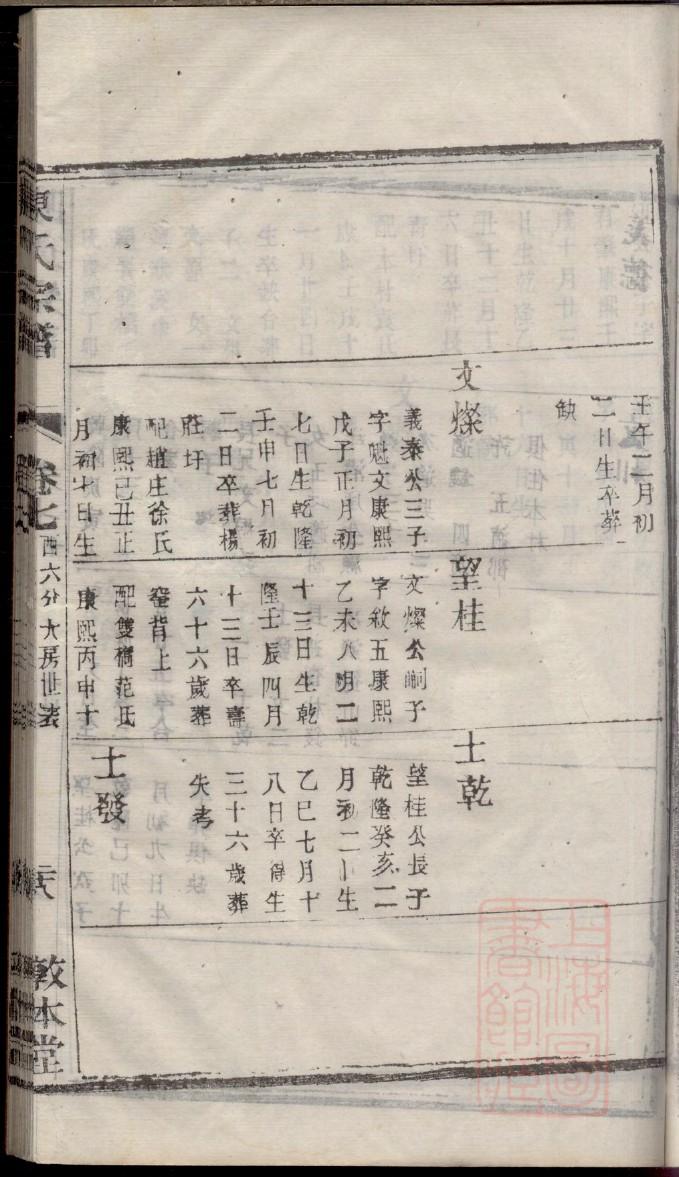 壬午二月初
二日生卒葬
缺
文燦
義泰公三子
字魁文康熙
戊子正月初
七日生乾隆
壬申七月初
二日卒葬楊
莊圩
配趙庄徐氏
康熙己丑正
月初七日生
望桂
文燦公嗣子
字敘五康熙
乙未八月二
十三日生乾
隆壬辰四月
十三日卒壽
六十六歲葬
窑背上
配雙橋范氏
康熙丙申十
士乾
望桂公長子
乾隆癸亥二
月初二日生
乙巳七月十
八日卒得生
三十六歲葬
失考
士發
氏宗譜
卷七
西六分大房世表
敦本堂
上海圖書館藏